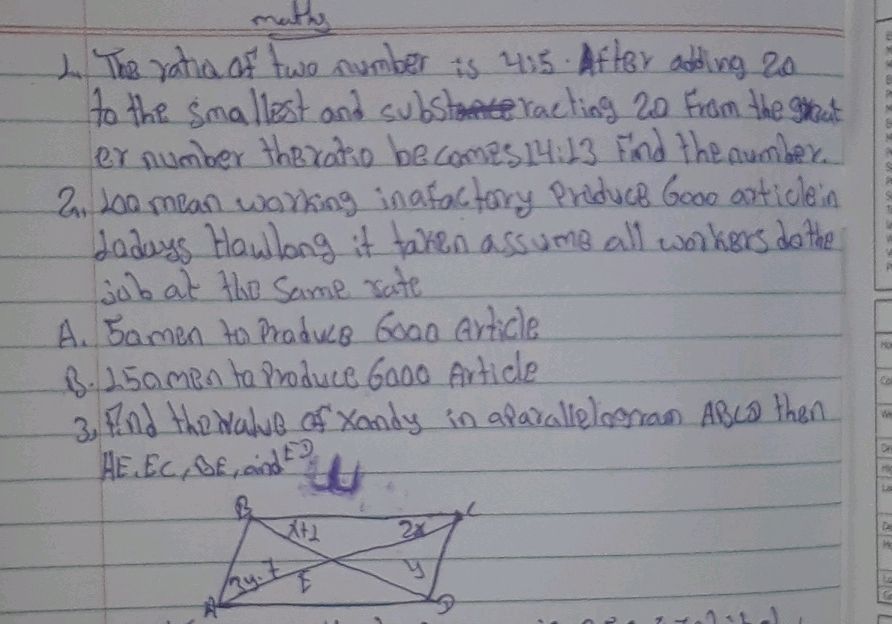 maths
1. The ratio of two number is 4:5. After adding 20
to the smallest and substracting 20 From the great
er number the ratio becomes 14:13 Find the number.
2. 100 mean warking in a factory Produce 6000 article in
10 days How long it taken assume all workers do the
job at the same rate
A. 50 men to Produce 6000 Article
B. 150 men to Produce 6000 Article
3, Find the value of x and y in a Parallelogram ABCD then
AE, EC, BE, and ED
B C
x+1 2x
3y-7 E y
A D